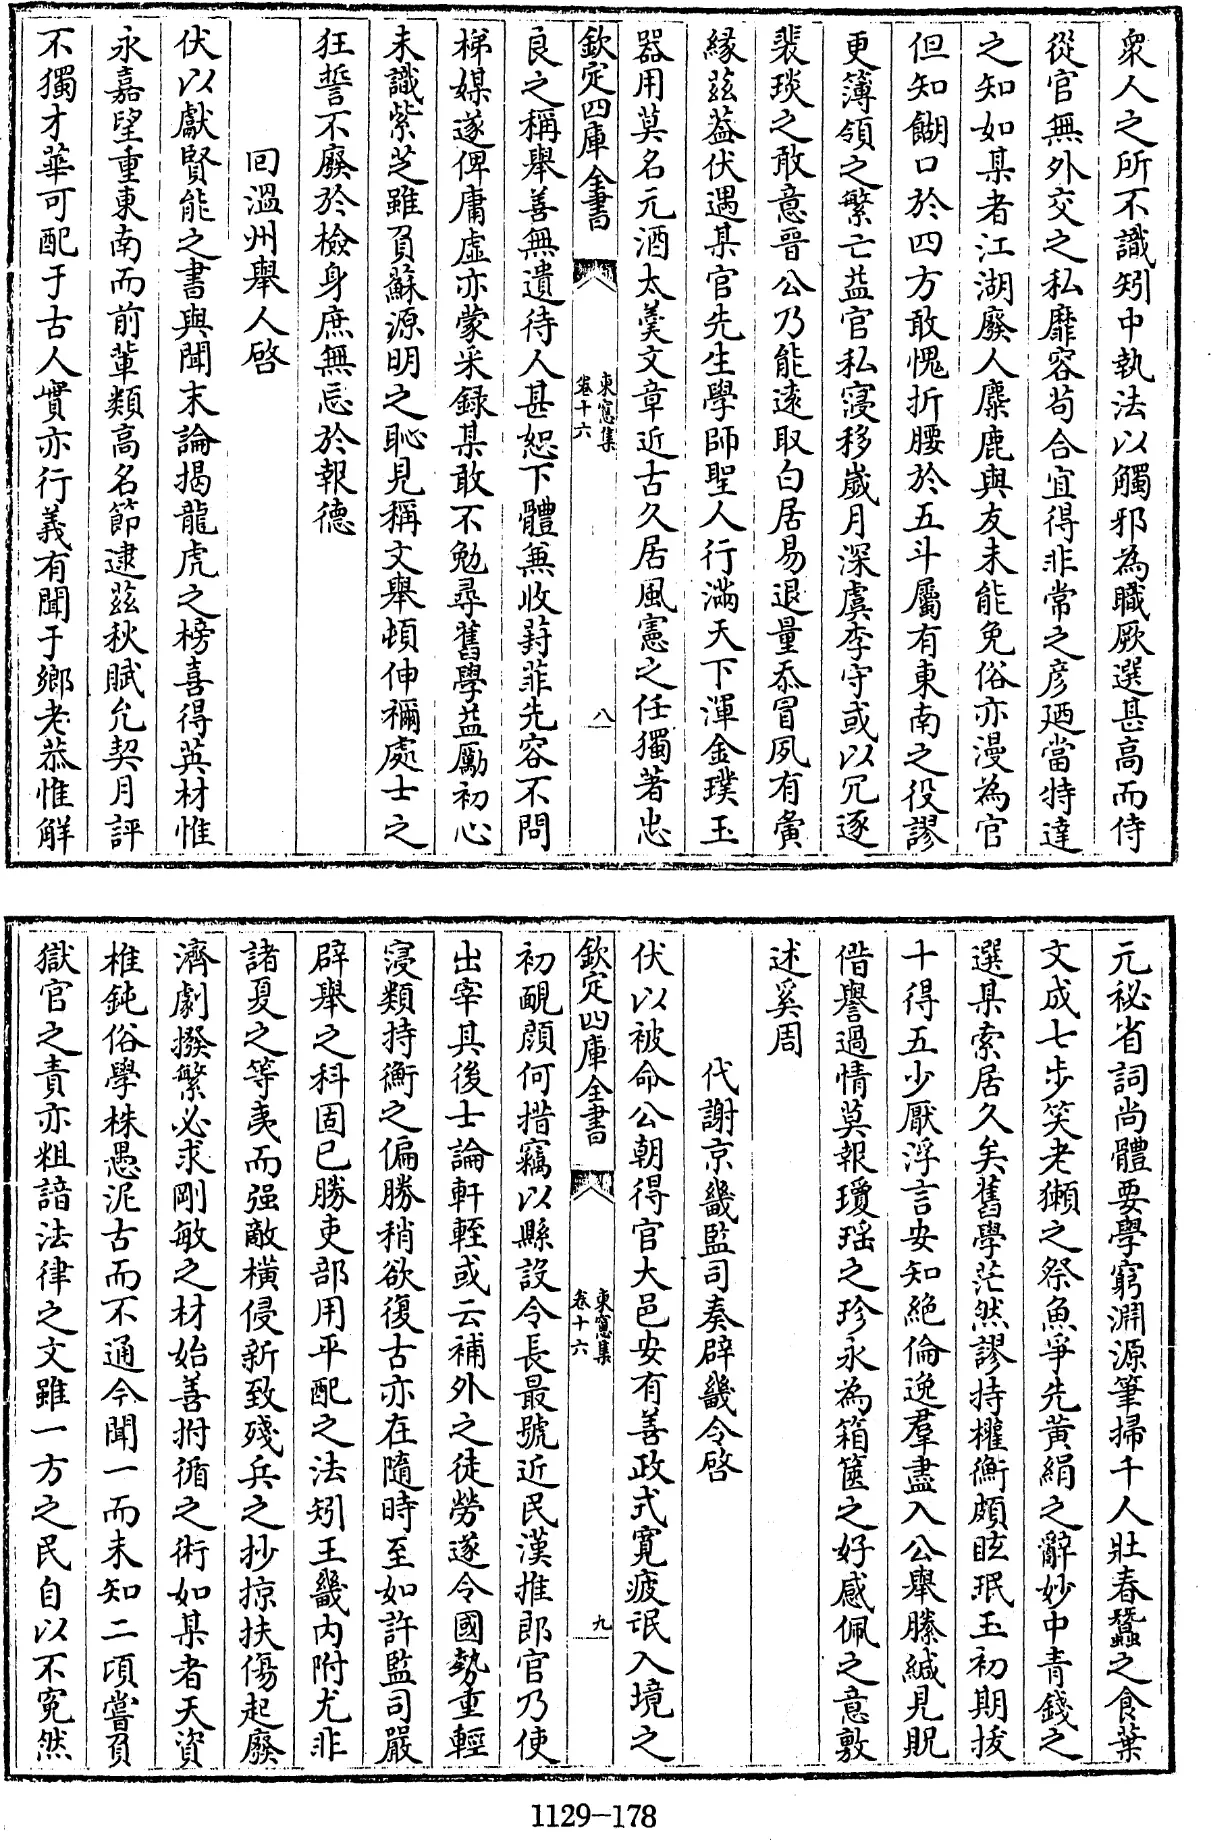 衆人之所不識矧中執法以觸邪為職厥選甚高而侍
從官無外交之私靡容茍合宜得非常之彦廼當特達
之知如某者江湖廢人麋鹿與友未能免俗亦漫為官
但知餬口於四方敢愧折腰於五斗屬有東南之役謬
更簿領之繁亡益官私寖移歲月深虞李守或以冗逐
裴琰之敢意晉公乃能逺取白居易退量忝冒夙有夤
縁兹葢伏遇某官先生學師聖人行滿天下渾金璞玉
器用莫名元酒太羮文章近古久居風憲之任獨著忠
欽定四庫全書
東窻集
卷十六
八
良之稱舉善無遺待人甚恕下體兼收葑菲先容不問
梯媒遂俾庸虚亦蒙采録某敢不勉尋舊學益勵初心
未識紫芝雖負蘇源明之恥見稱文舉頓伸禰處士之
狂誓不廢於檢身庶無忘於報德
回溫州舉人啓
伏以獻賢能之書與聞末論揭龍虎之榜喜得英材惟
永嘉望重東南而前輩類高名節逮兹秋賦允契月評
不獨才華可配于古人實亦行義有聞于鄉老恭惟解
元秘省詞尚體要學窮淵源筆掃千人壯春蠶之食葉
文成七步笑老獺之祭魚爭先黄絹之辭妙中青錢之
選某索居久矣舊學茫然謬持權衡頗眩珉玉初期拔
十得五少厭浮言安知絶倫逸羣盡入公舉縢緘見貺
借譽過情莫報瓊瑶之珍永為箱篋之好感佩之意敷
述奚周
代謝京畿監司奏辟畿令啓
伏以被命公朝得官大邑安有善政式寛疲氓入境之
欽定四庫全書
東窻集
卷十六
九
初靦顔何措竊以縣設令長最號近民漢推郎官乃使
出宰其後士論軒輊或云補外之徒勞遂令國勢重輕
寖類持衡之偏勝稍欲復古亦在隨時至如許監司嚴
辟舉之科固已勝吏部用平配之法矧王畿内附尤非
諸夏之等夷而强敵橫侵新致殘兵之抄掠扶傷起廢
濟劇撥繁必求剛敏之材始善拊循之術如某者天資
椎鈍俗學株愚泥古而不通今聞一而未知二頃嘗負
獄官之責亦粗諳法律之文雖一方之民自以不寃然
1129-178